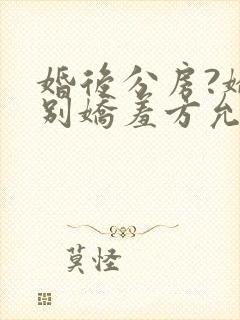 婚後分房?
别嬌羞方允
莫怪